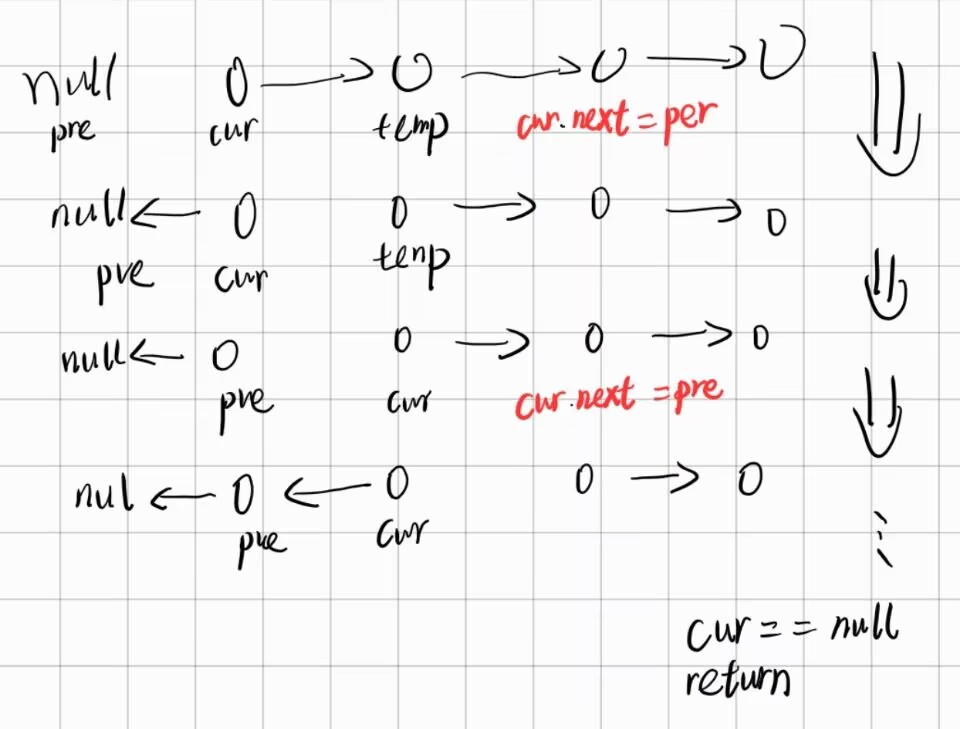 null 0 → 0 → 0 → 0
pre cur temp cur.next = per
null ← 0 0 → 0 → 0
pre cur temp
null ← 0 0 → 0 → 0
pre cur cur.next = pre
nul ← 0 ← 0 0 → 0
pre cur
cur == null
return